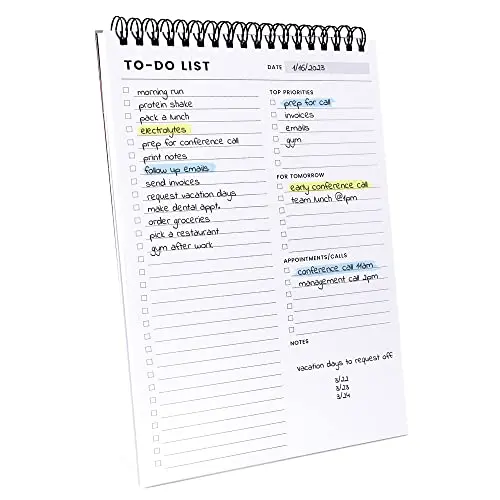 TO-DO LIST
DATE 1/16/2023
morning run
protein shake
pack a lunch
electrolytes
prep for conference call
print notes
follow up emails
send invoices
request vacation days
make dental appt.
order groceries
pick a restaurant
gym after work
TOP PRIORITIES
prep for call
invoices
emails
gym
FOR TOMORROW
early conference call
team lunch @1pm
APPOINTMENTS/CALLS
conference call 11am
management call 2pm
NOTES
vacation days to request off
3/22
3/23
3/24